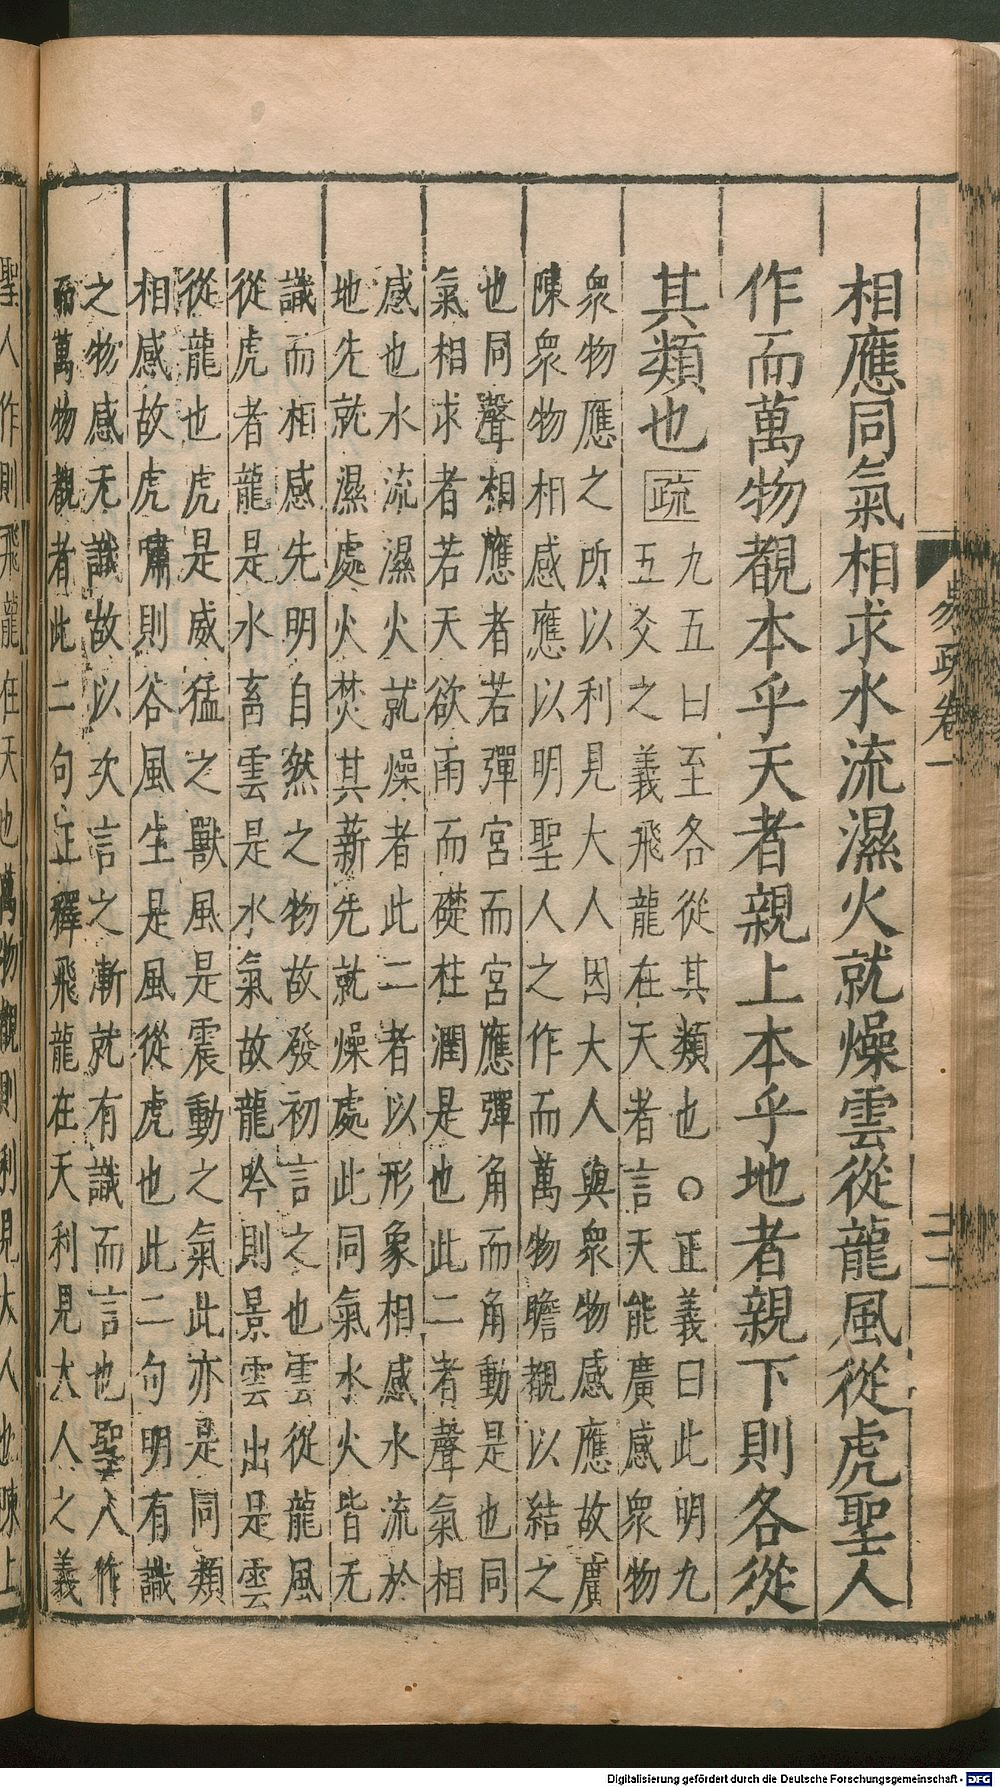 相應同氣相求水流濕火就燥雲從龍風從虎聖人
作而萬物覩本乎天者親上本乎地者親下則各從
其類也疏
九五曰至各從其類也○正義曰此明九
五爻之義飛龍在天者言天能廣感衆物
衆物應之所以利見大人因大人與衆物感應故廣
陳衆物相感應以明聖人之作而萬物瞻覩以結之
也同聲相應者若彈宮而宮應彈角而角動是也同
氣相求者若天欲雨而礎柱潤是也此二者聲氣相
感也水流濕火就燥者此二者以形象相感水流於
地先就濕處火焚其薪先就燥處此同氣水火皆无
識而相感先明自然之物故發初言之也雲從龍風
從虎者龍是水畜雲是水氣故龍吟則景雲出是雲
從龍也虎是威猛之獸風是震動之氣此亦是同類
相感故虎嘯則谷風生是風從虎也此二句明有識
之物感无識故以次言之漸就有識而言也聖人作
而萬物覩者此二句正釋飛龍在天利見大人之義
易疏卷一
二二
聖人作則飛龍在天也萬物覩則利見大人也陳上
Digitalisierung gefördert durch die Deutsche Forschungsgemeinschaft - DFG